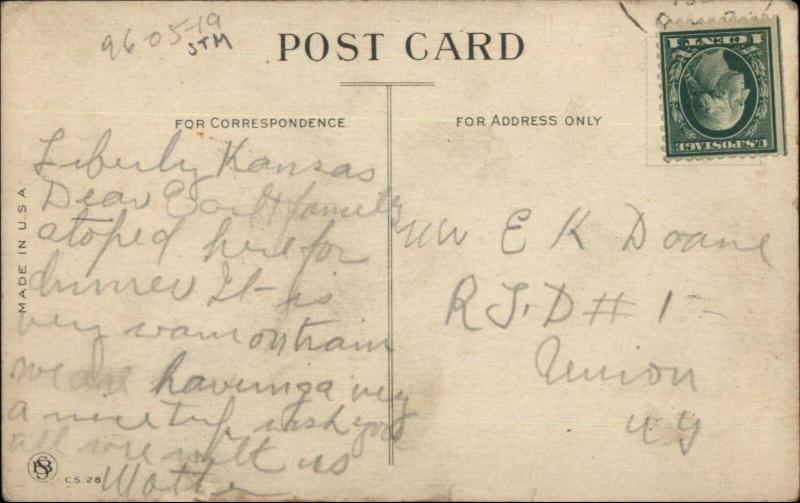 96 05-19
STM
POST CARD
1 CENT 1
U.S. POSTAGE
FOR CORRESPONDENCE
FOR ADDRESS ONLY
MADE IN U.S.A.
Liberty Kansas
Dear Earl & family
stoped here for
dinner It is
very warm on train
we are haveing a very
a nice trip wish you
all were with us
Mother
E K Doane
R.F.D # 1
Union
NY
C.S. 28